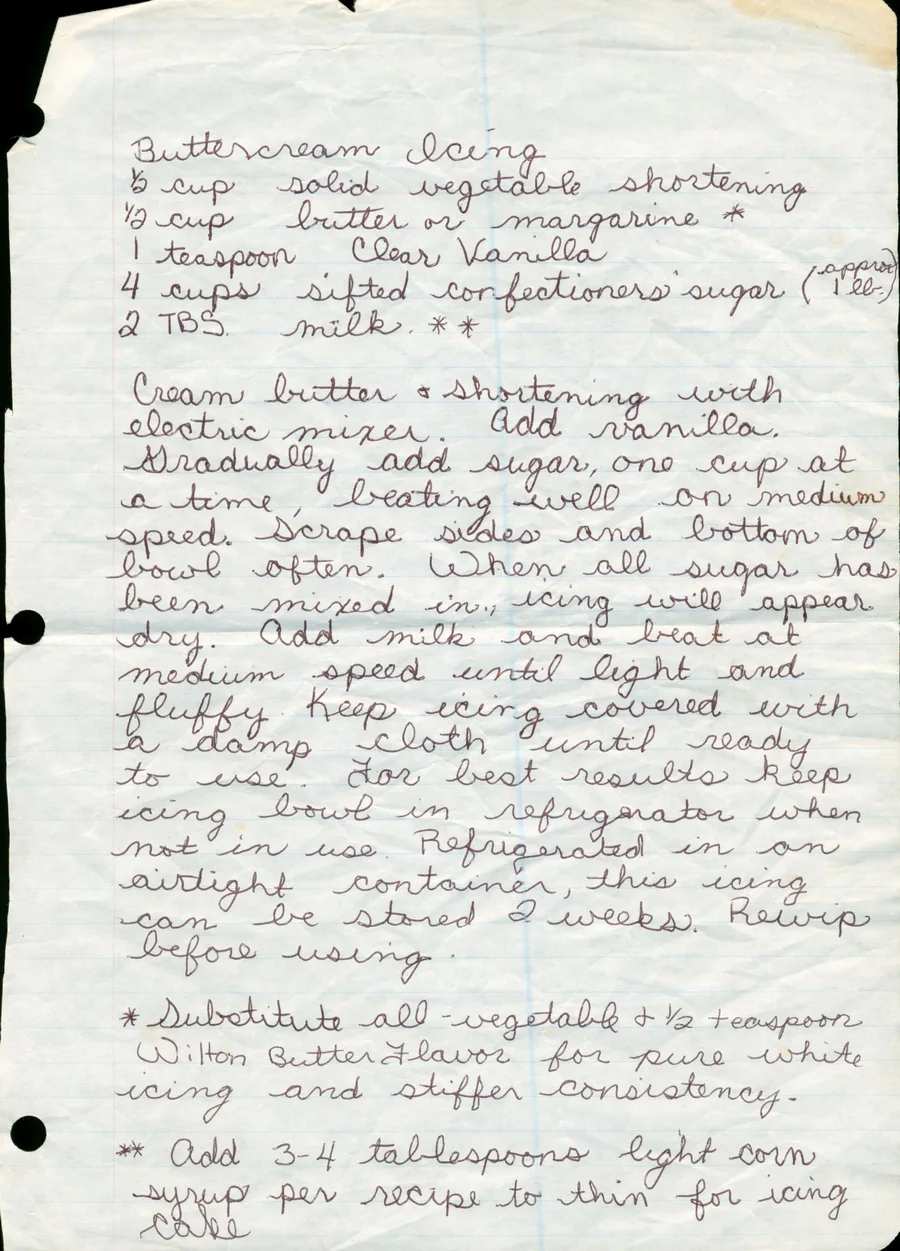 Buttercream Icing
½ cup solid vegetable shortening
½ cup butter or margarine *
1 teaspoon Clear Vanilla
4 cups sifted confectioners' sugar (approx 1 lb.)
2 TBS. milk. **
Cream butter & shortening with
electric mixer. Add vanilla.
Gradually add sugar, one cup at
a time, beating well on medium
speed. Scrape sides and bottom of
bowl often. When all sugar has
been mixed in, icing will appear
dry. Add milk and beat at
medium speed until light and
fluffy. Keep icing covered with
a damp cloth until ready
to use. For best results keep
icing bowl in refrigerator when
not in use. Refrigerated in an
airtight container, this icing
can be stored 2 weeks. Rewip
before using.
* Substitute all-vegetable & ½ teaspoon
Wilton Butter Flavor for pure white
icing and stiffer consistency.
** Add 3-4 tablespoons light corn
syrup per recipe to thin for icing
cake